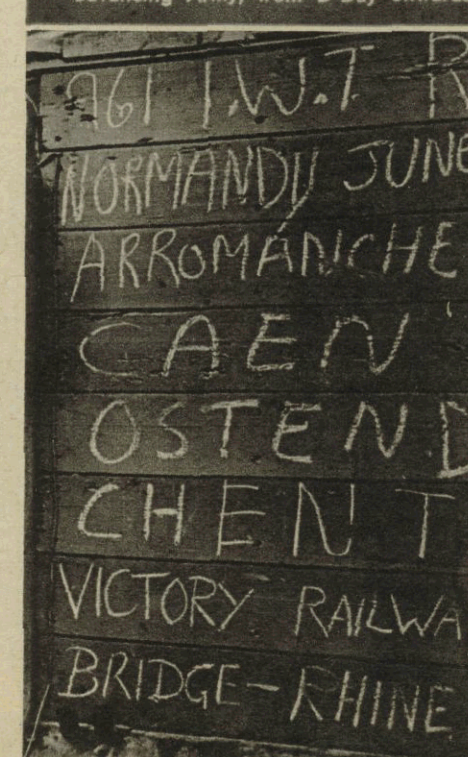 Army, from D-Day
961 I.W.T R
NORMANDY JUNE
ARROMANCHE
CAEN '
OSTEND
CHENT
VICTORY RAILWA
BRIDGE-RHINE